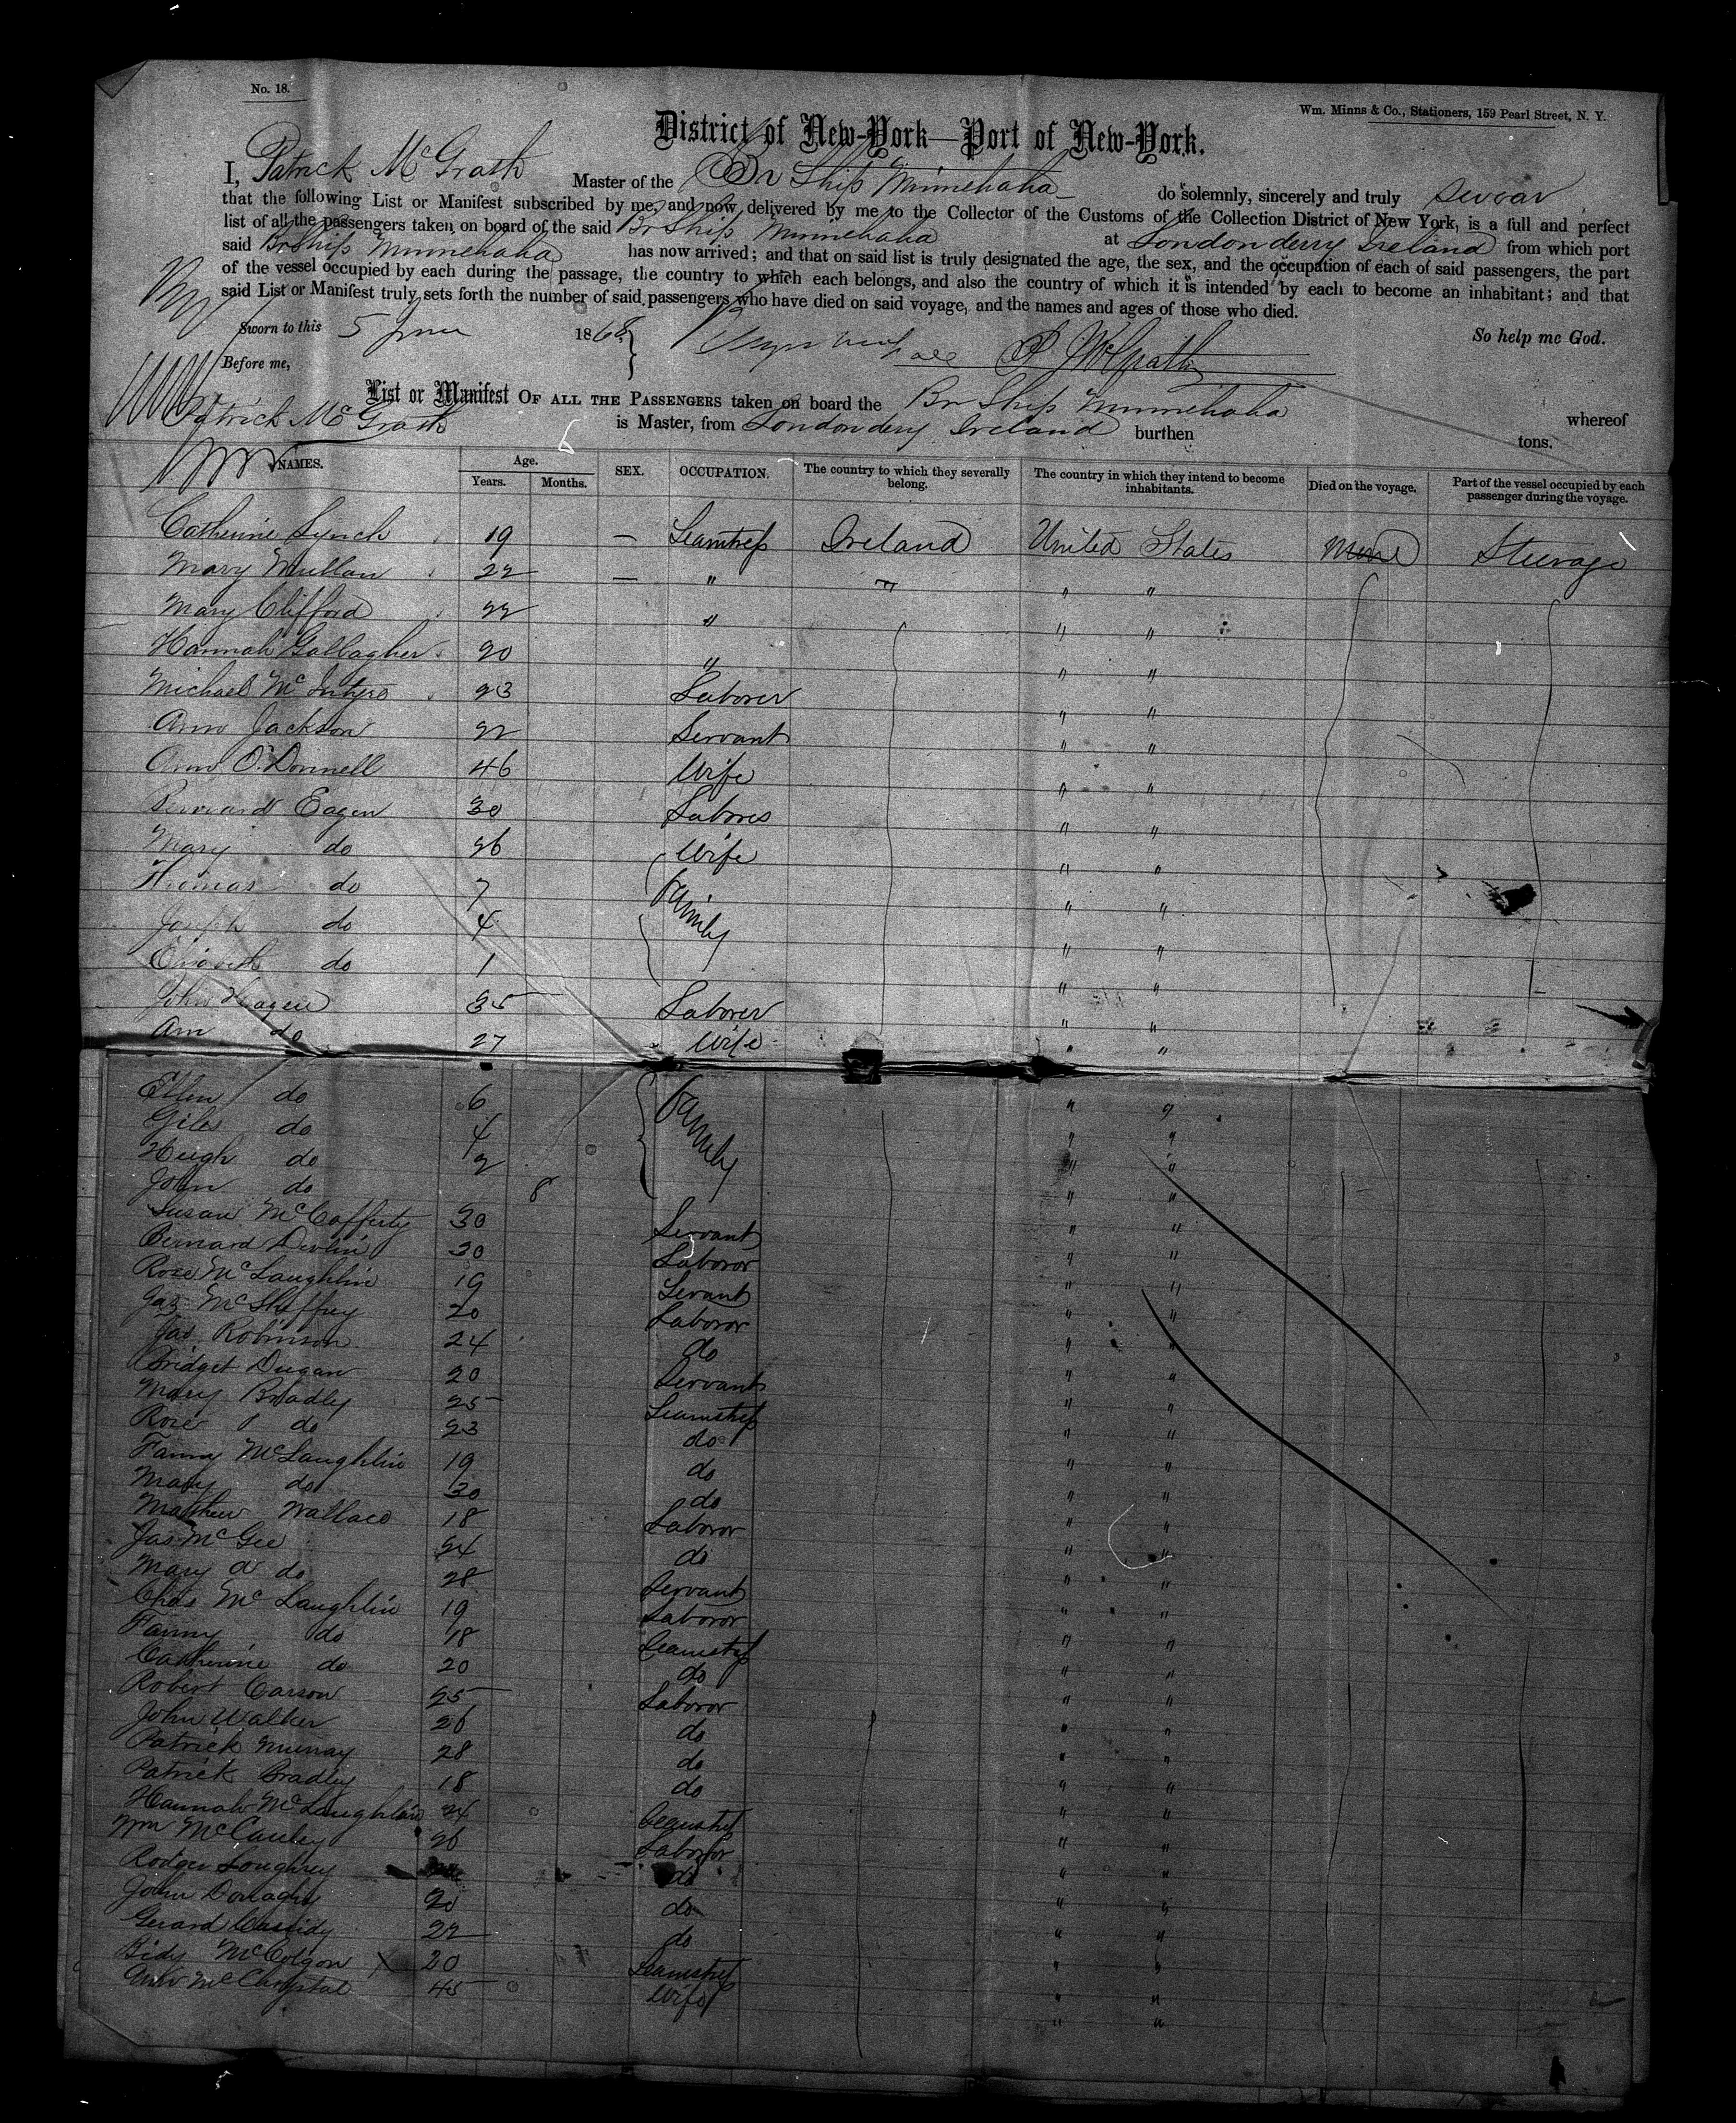 No. 18.
Wm. Minns & Co., Stationers, 159 Pearl Street, N. Y.
District of New-York—Port of New-York.
I, Patrick McGrath Master of the Br Ship Minnehaha do solemnly, sincerely and truly swear
that the following List or Manifest subscribed by me, and now delivered by me to the Collector of the Customs of the Collection District of New York, is a full and perfect
list of all the passengers taken on board of the said Br Ship Minnehaha at Londonderry Ireland from which port
said Br Ship Minnehaha has now arrived; and that on said list is truly designated the age, the sex, and the occupation of each of said passengers, the part
of the vessel occupied by each during the passage, the country to which each belongs, and also the country of which it is intended by each to become an inhabitant; and that
said List or Manifest truly sets forth the number of said passengers who have died on said voyage, and the names and ages of those who died.
Sworn to this 5 June 1868 So help me God.
P. McGrath
Before me,
List or Manifest OF ALL THE PASSENGERS taken on board the Br Ship Minnehaha whereof
Patrick McGrath is Master, from Londonderry Ireland burthen tons.
NAMES. Age. Years. Months. SEX. OCCUPATION. The country to which they severally belong. The country in which they intend to become inhabitants. Died on the voyage. Part of the vessel occupied by each passenger during the voyage.
Catherine Lynch 19 — Seamstress Ireland United States None Steerage
Mary Mullan 22 — " " " "
Mary Clifford 22 " " "
Hannah Gallagher 20 " " "
Michael McIntyre 23 Laborer " "
Ann Jackson 22 Servant " "
Ann O'Donnell 46 Wife " "
Bernard Eagen 30 Laborer " "
Mary do 26 Wife " "
Thomas do 7 Family " "
Joseph do 4 " "
do 1 " "
John Hagen 35 Laborer " "
Ann do 27 Wife " "
Ellen do 6 Family " "
Giles do 4 " "
Hugh do 2 " "
John do 8 " "
Susan McCafferty 30 Servant " "
Bernard Devlin 30 Laboror " "
Rose McLaughlin 19 Servant " "
Jas McSheffrey 20 Laboror " "
Jas Robinson 24 do " "
Bridget Dugan 20 Servant " "
Mary Bradley 25 Seamstress " "
Rose do 23 do " "
Fanny McLaughlin 19 do " "
Mary do 30 do " "
Matthew Wallace 18 Laboror " "
Jas McGee 24 do " "
Mary A do 28 Servant " "
Chas McLaughlin 19 Laboror " "
Fanny do 18 Seamstress " "
Catherine do 20 do " "
Robert Carson 25 Laboror " "
John Walker 26 do " "
Patrick Murray 28 do " "
Patrick Bradley 18 do " "
Hannah McLaughlin 24 Seamstress " "
Wm McCauley 26 Laboror " "
Rodger Loughrey do " "
John Donaghy 20 do " "
Gerard Cassidy 22 do " "
Bidy McColgan X 20 Seamstress " "
Ann McChrystal 45 Wife " "
" "